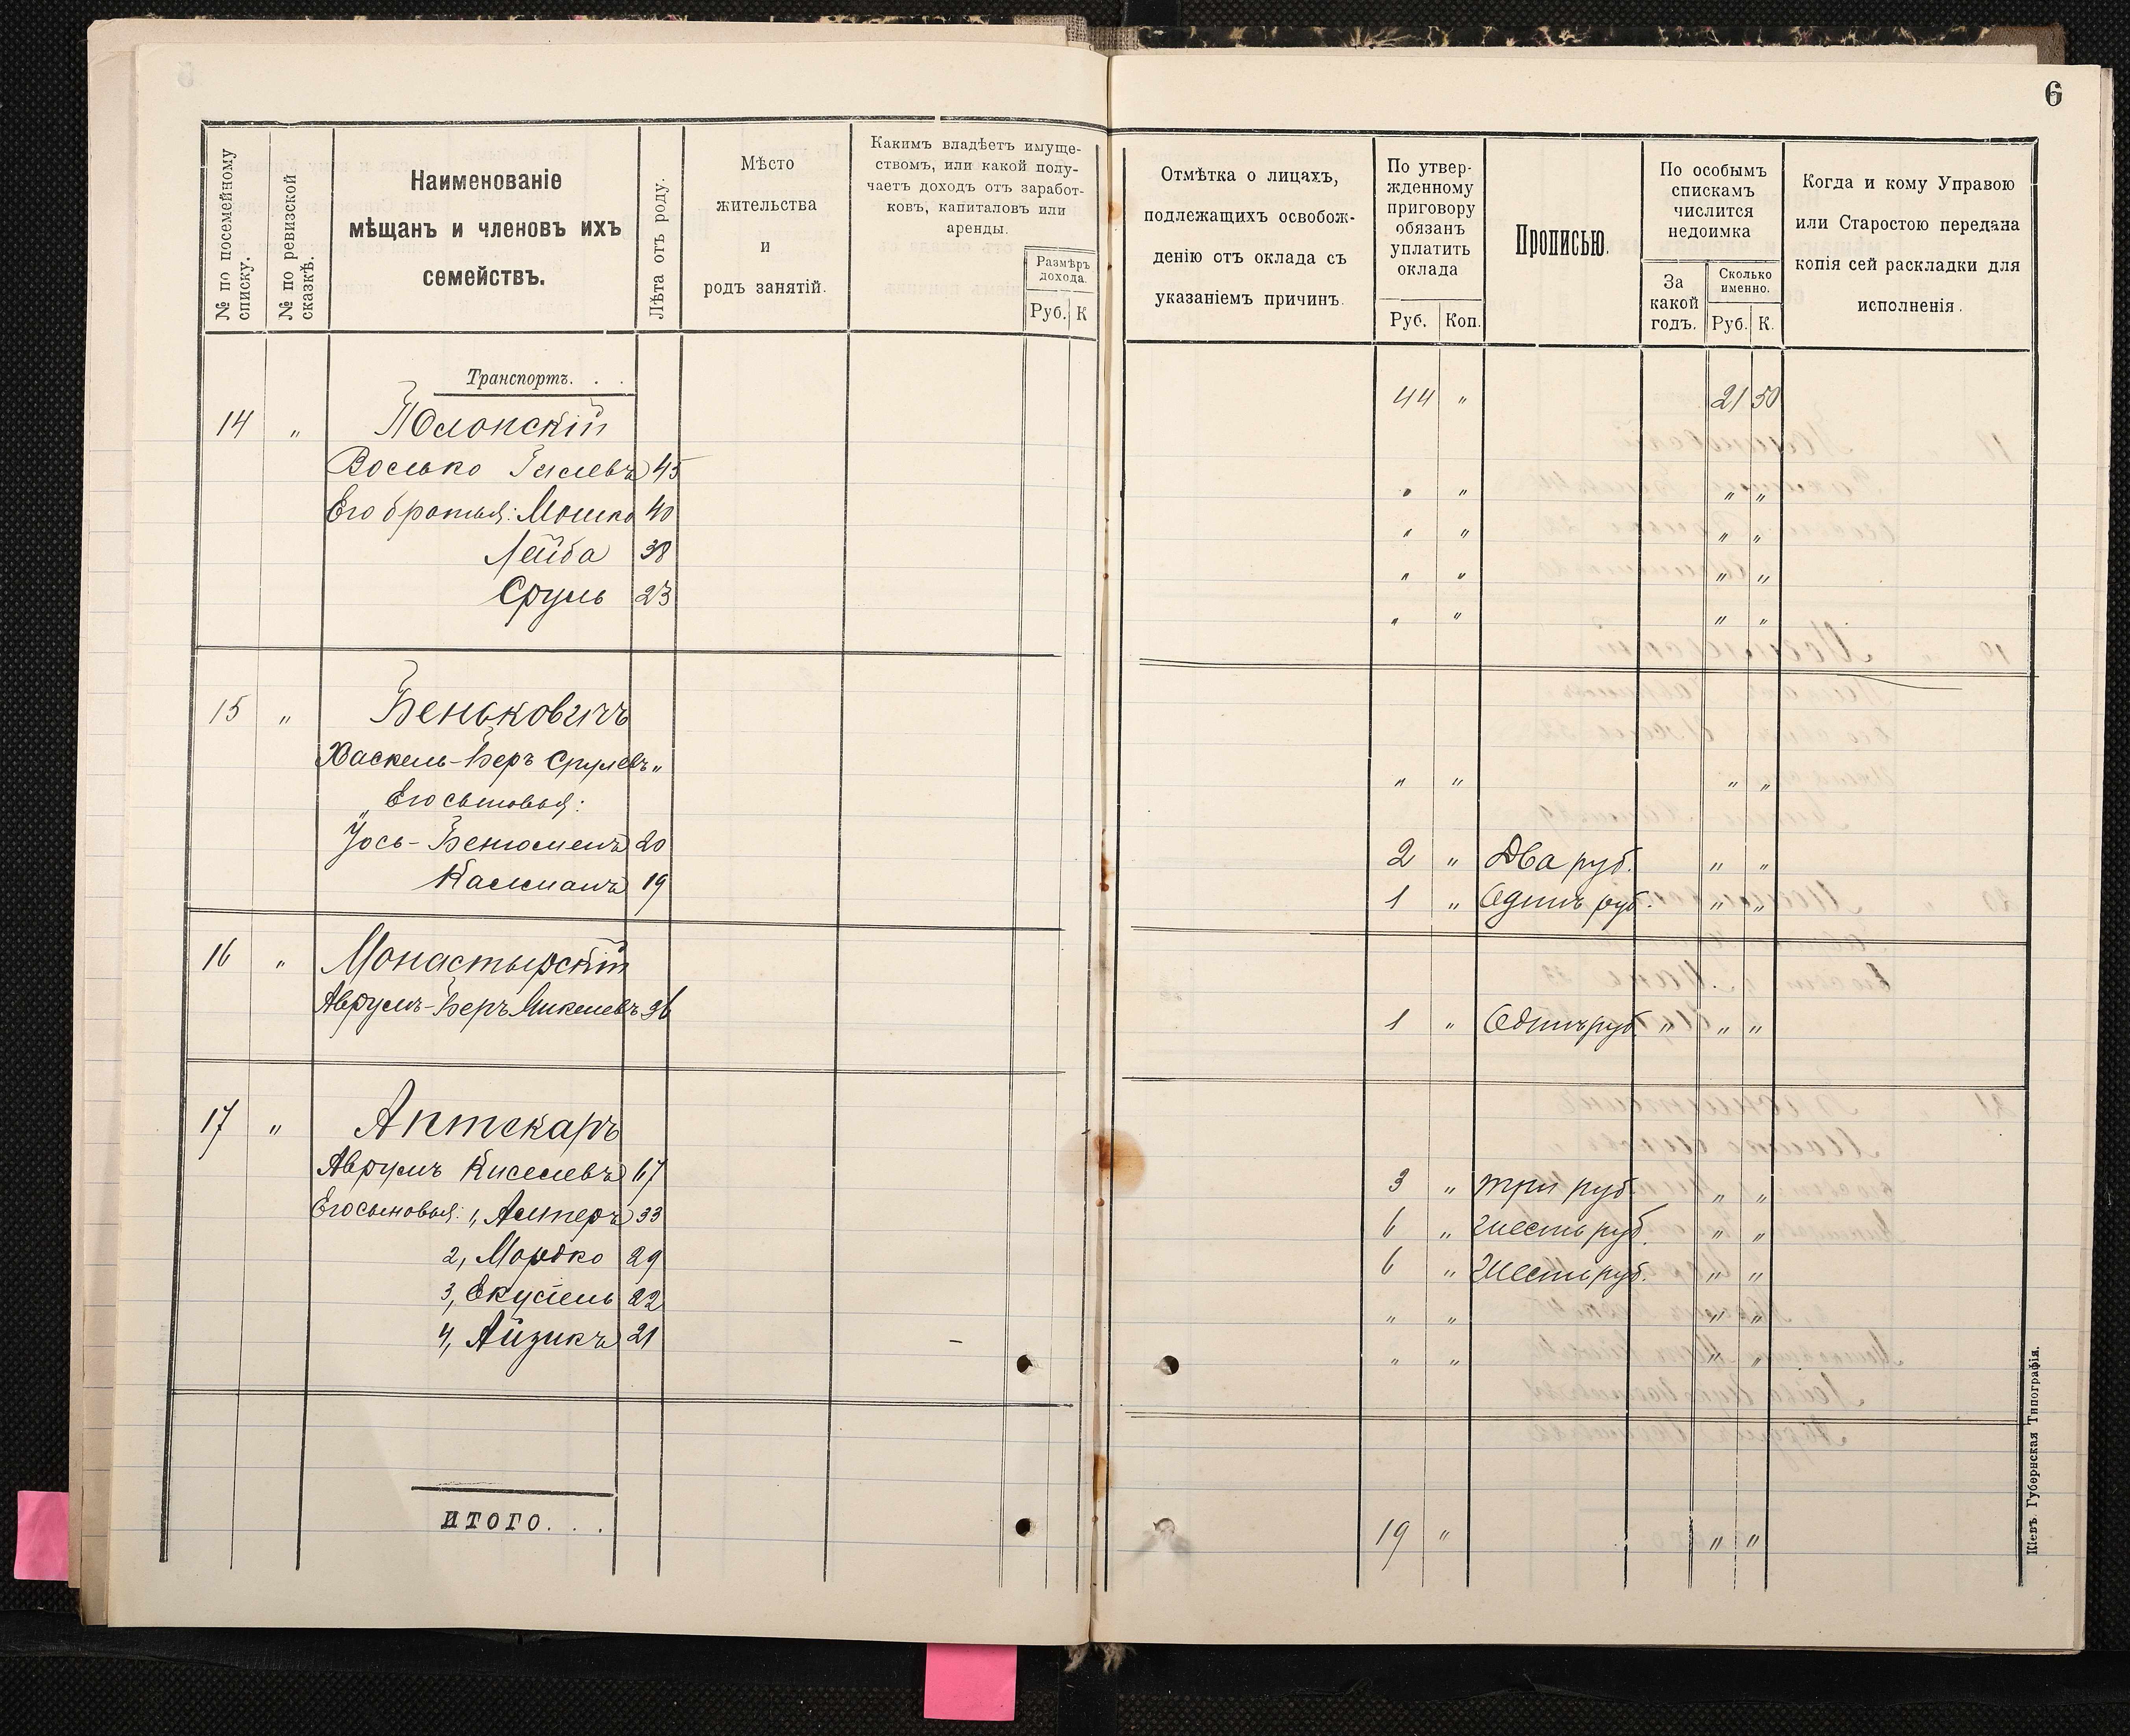 6
№ по посемейному списку.
№ по ревизской сказкѣ.
Наименованіе
мѣщанъ и членовъ ихъ
семействъ.
Лѣта отъ роду.
Мѣсто
жительства
и
родъ занятій.
Какимъ владѣетъ имуще-
ствомъ, или какой полу-
чаетъ доходъ отъ заработ-
ковъ, капиталовъ или
аренды.
Размѣръ
дохода.
Руб. К
Отмѣтка о лицахъ,
подлежащихъ освобож-
денію отъ оклада съ
указаніемъ причинъ.
По утвер-
жденному
приговору
обязанъ
уплатить
оклада
Руб. Коп.
Прописью.
По особымъ
спискамъ
числится
недоимка
За
какой
годъ.
Сколько
именно.
Руб. К.
Когда и кому Управою
или Старостою передана
копія сей раскладки для
исполненія.
Транспортъ. . .
44 " 21 50
14 " Полонскій
Восько 45 " " " "
Его братья: Мошко 40 " " " "
Лейба 38 " " " "
Сруль 23 " " " "
15 " Беньковичъ
Хаскель-Беръ Срулевъ " " " " "
Его сыновья:
Іось-Бенюменъ 20 2 " Два руб. " "
Калманъ 19 1 " Одинъ руб. " "
16 " Монастырскій
Аврумъ-Беръ 36 1 " Одинъ руб. " " "
17 " Аптекаръ
Аврумъ Киселевъ 67 3 " три руб. " "
Его сыновья: 1, Алтеръ 33 6 " Шесть руб. " "
2, Мордко 29 6 " Шесть руб. " "
3, Екусіель 22 " " " "
4, Айзикъ 21 – " " " "
ИТОГО. . .
19 " " "
Кіевъ. Губернская Типографія.